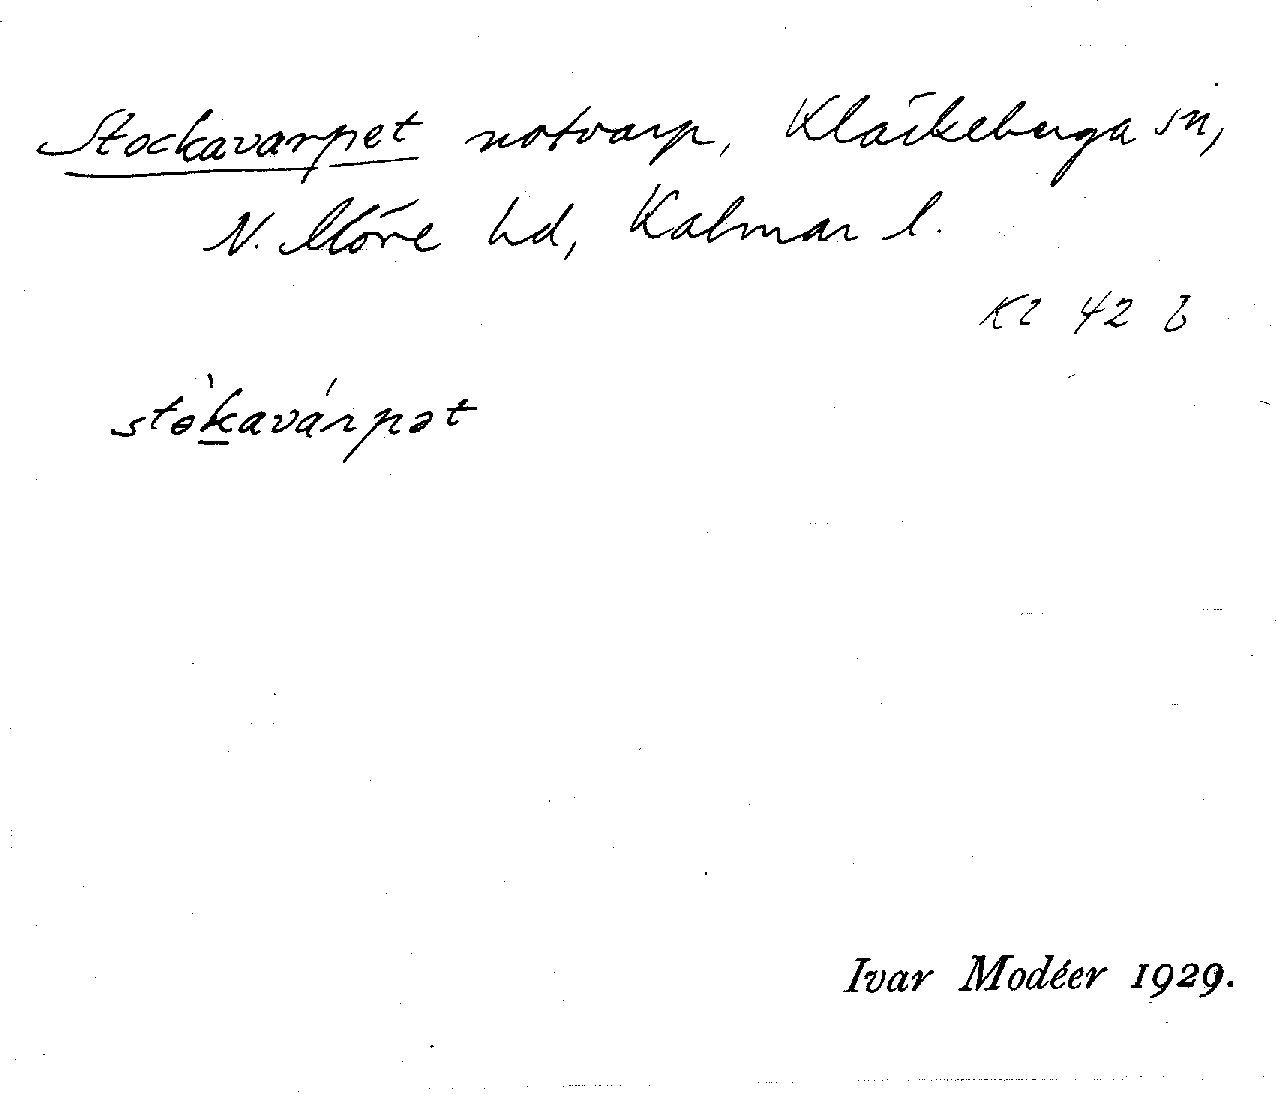 Stockavarpet notvarp, Kläckeberga sn,
N. Möre hd, Kalmar l.
Kl 42 b
stòkavárpət
Ivar Modéer 1929.